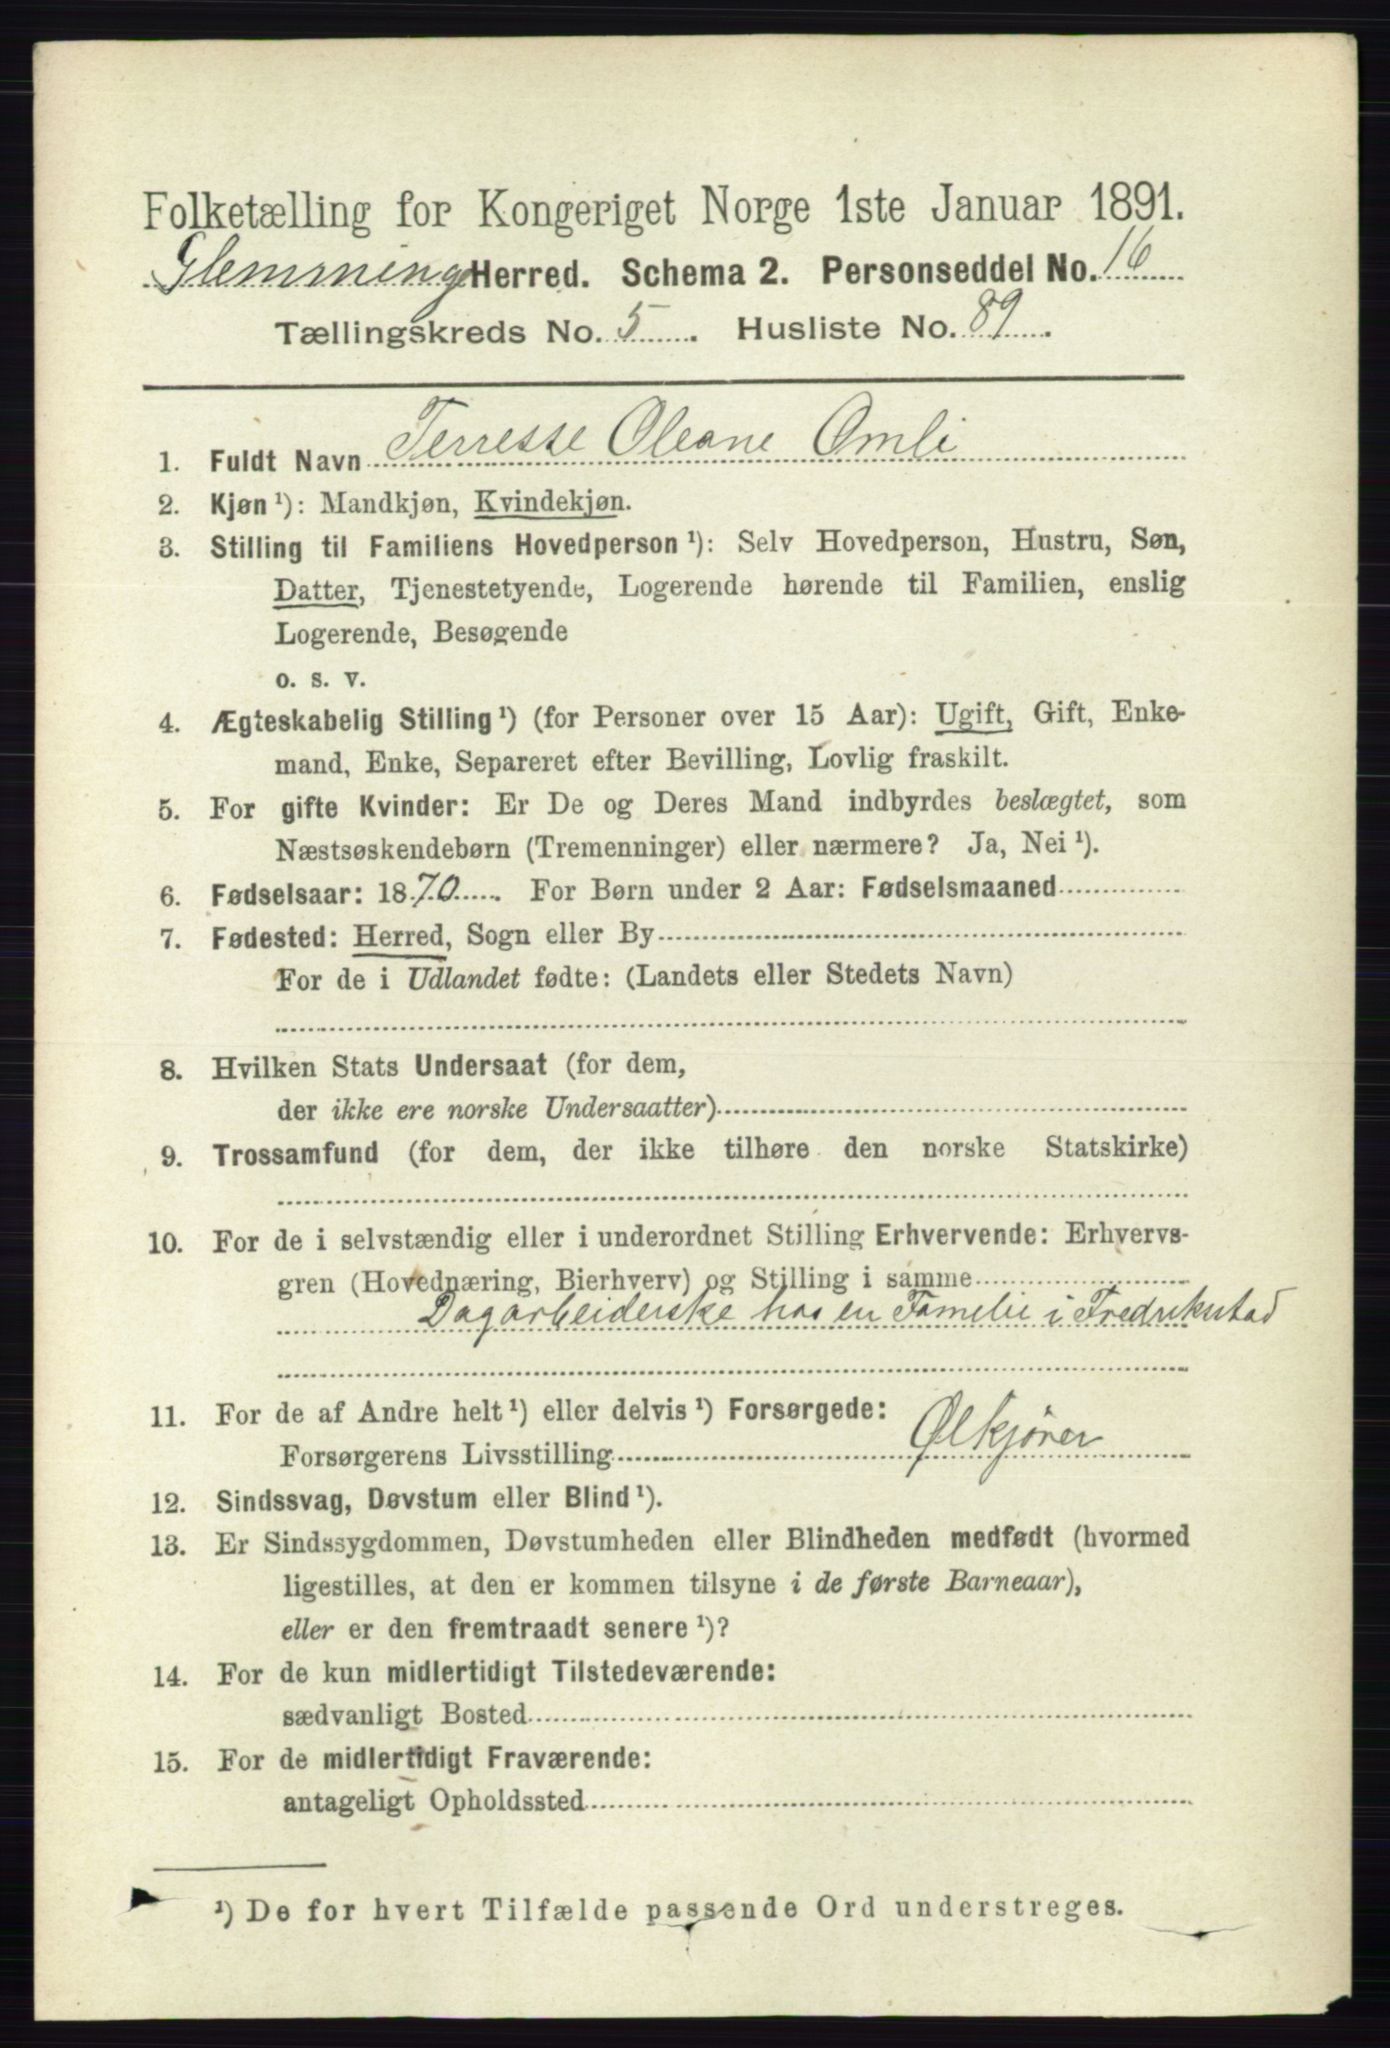 Folketælling for Kongeriget Norge 1ste Januar 1891.
Glemminge Herred. Schema 2. Personseddel No. 16
Tællingskreds No. 5. Husliste No. 89.
1. Fuldt Navn Terresse Oleane Omli
2. Kjøn ¹): Mandkjøn, Kvindekjøn.
3. Stilling til Familiens Hovedperson ¹): Selv Hovedperson, Hustru, Søn,
Datter, Tjenestetyende, Logerende hørende til Familien, enslig
Logerende, Besøgende
o. s. v.
4. Ægteskabelig Stilling ¹) (for Personer over 15 Aar): Ugift, Gift, Enke-
mand, Enke, Separeret efter Bevilling, Lovlig fraskilt.
5. For gifte Kvinder: Er De og Deres Mand indbyrdes beslægtet, som
Næstsøskendebørn (Tremenninger) eller nærmere? Ja, Nei ¹).
6. Fødselsaar: 1870. For Børn under 2 Aar: Fødselsmaaned
7. Fødested: Herred, Sogn eller By
For de i Udlandet fødte: (Landets eller Stedets Navn)
8. Hvilken Stats Undersaat (for dem,
der ikke ere norske Undersaatter)
9. Trossamfund (for dem, der ikke tilhøre den norske Statskirke)
10. For de i selvstændig eller i underordnet Stilling Erhvervende: Erhvervs-
gren (Hovednæring, Bierhverv) og Stilling i samme
Dagarbeiderske hos en Familie i Fredrikstad
11. For de af Andre helt ¹) eller delvis ¹) Forsørgede:
Forsørgerens Livsstilling Ølkjører
12. Sindssvag, Døvstum eller Blind ¹).
13. Er Sindssygdommen, Døvstumheden eller Blindheden medfødt (hvormed
ligestilles, at den er kommen tilsyne i de første Barneaar),
eller er den fremtraadt senere ¹)?
14. For de kun midlertidigt Tilstedeværende:
sædvanligt Bosted
15. For de midlertidigt Fraværende:
antageligt Opholdssted
¹) De for hvert Tilfælde passende Ord understreges.